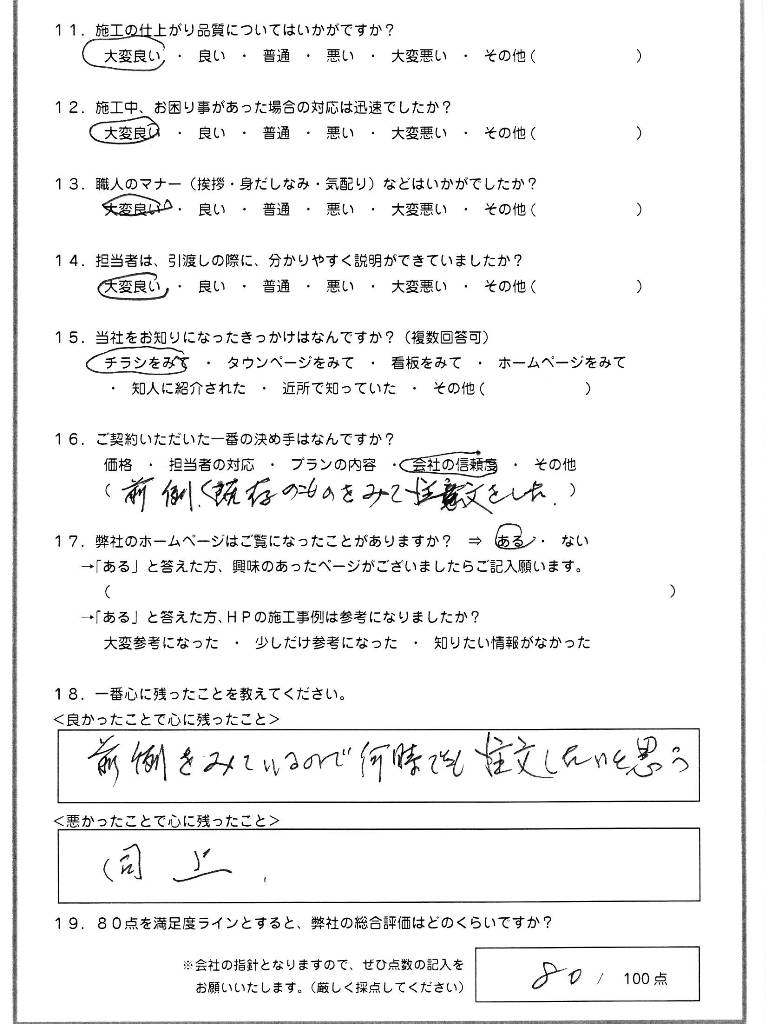 11．施工の仕上がり品質についてはいかがですか？
大変良い ・ 良い ・ 普通 ・ 悪い ・ 大変悪い ・ その他（　　　　　　　）
12．施工中、お困り事があった場合の対応は迅速でしたか？
大変良い ・ 良い ・ 普通 ・ 悪い ・ 大変悪い ・ その他（　　　　　　　）
13．職人のマナー（挨拶・身だしなみ・気配り）などはいかがでしたか？
大変良い ・ 良い ・ 普通 ・ 悪い ・ 大変悪い ・ その他（　　　　　　　）
14．担当者は、引渡しの際に、分かりやすく説明ができていましたか？
大変良い ・ 良い ・ 普通 ・ 悪い ・ 大変悪い ・ その他（　　　　　　　）
15．当社をお知りになったきっかけはなんですか？（複数回答可）
チラシをみて ・ タウンページをみて ・ 看板をみて ・ ホームページをみて
・ 知人に紹介された ・ 近所で知っていた ・ その他（　　　　　　　）
16．ご契約いただいた一番の決め手はなんですか？
価格 ・ 担当者の対応 ・ プランの内容 ・ 会社の信頼度 ・ その他
（ 前例、く既存のものをみて注文をした．）
17．弊社のホームページはご覧になったことがありますか？ ⇒ ある ・ ない
→「ある」と答えた方、興味のあったページがございましたらご記入願います。
（　　　　　　　　　　　　　　　　　　　　　　　　　　　　）
→「ある」と答えた方、ＨＰの施工事例は参考になりましたか？
大変参考になった ・ 少しだけ参考になった ・ 知りたい情報がなかった
18．一番心に残ったことを教えてください。
＜良かったことで心に残ったこと＞
前例をみているので何時でも注文したいと思う
＜悪かったことで心に残ったこと＞
（同上．
19．８０点を満足度ラインとすると、弊社の総合評価はどのくらいですか？
※会社の指針となりますので、ぜひ点数の記入を
お願いいたします。（厳しく採点してください）
80 / 100点